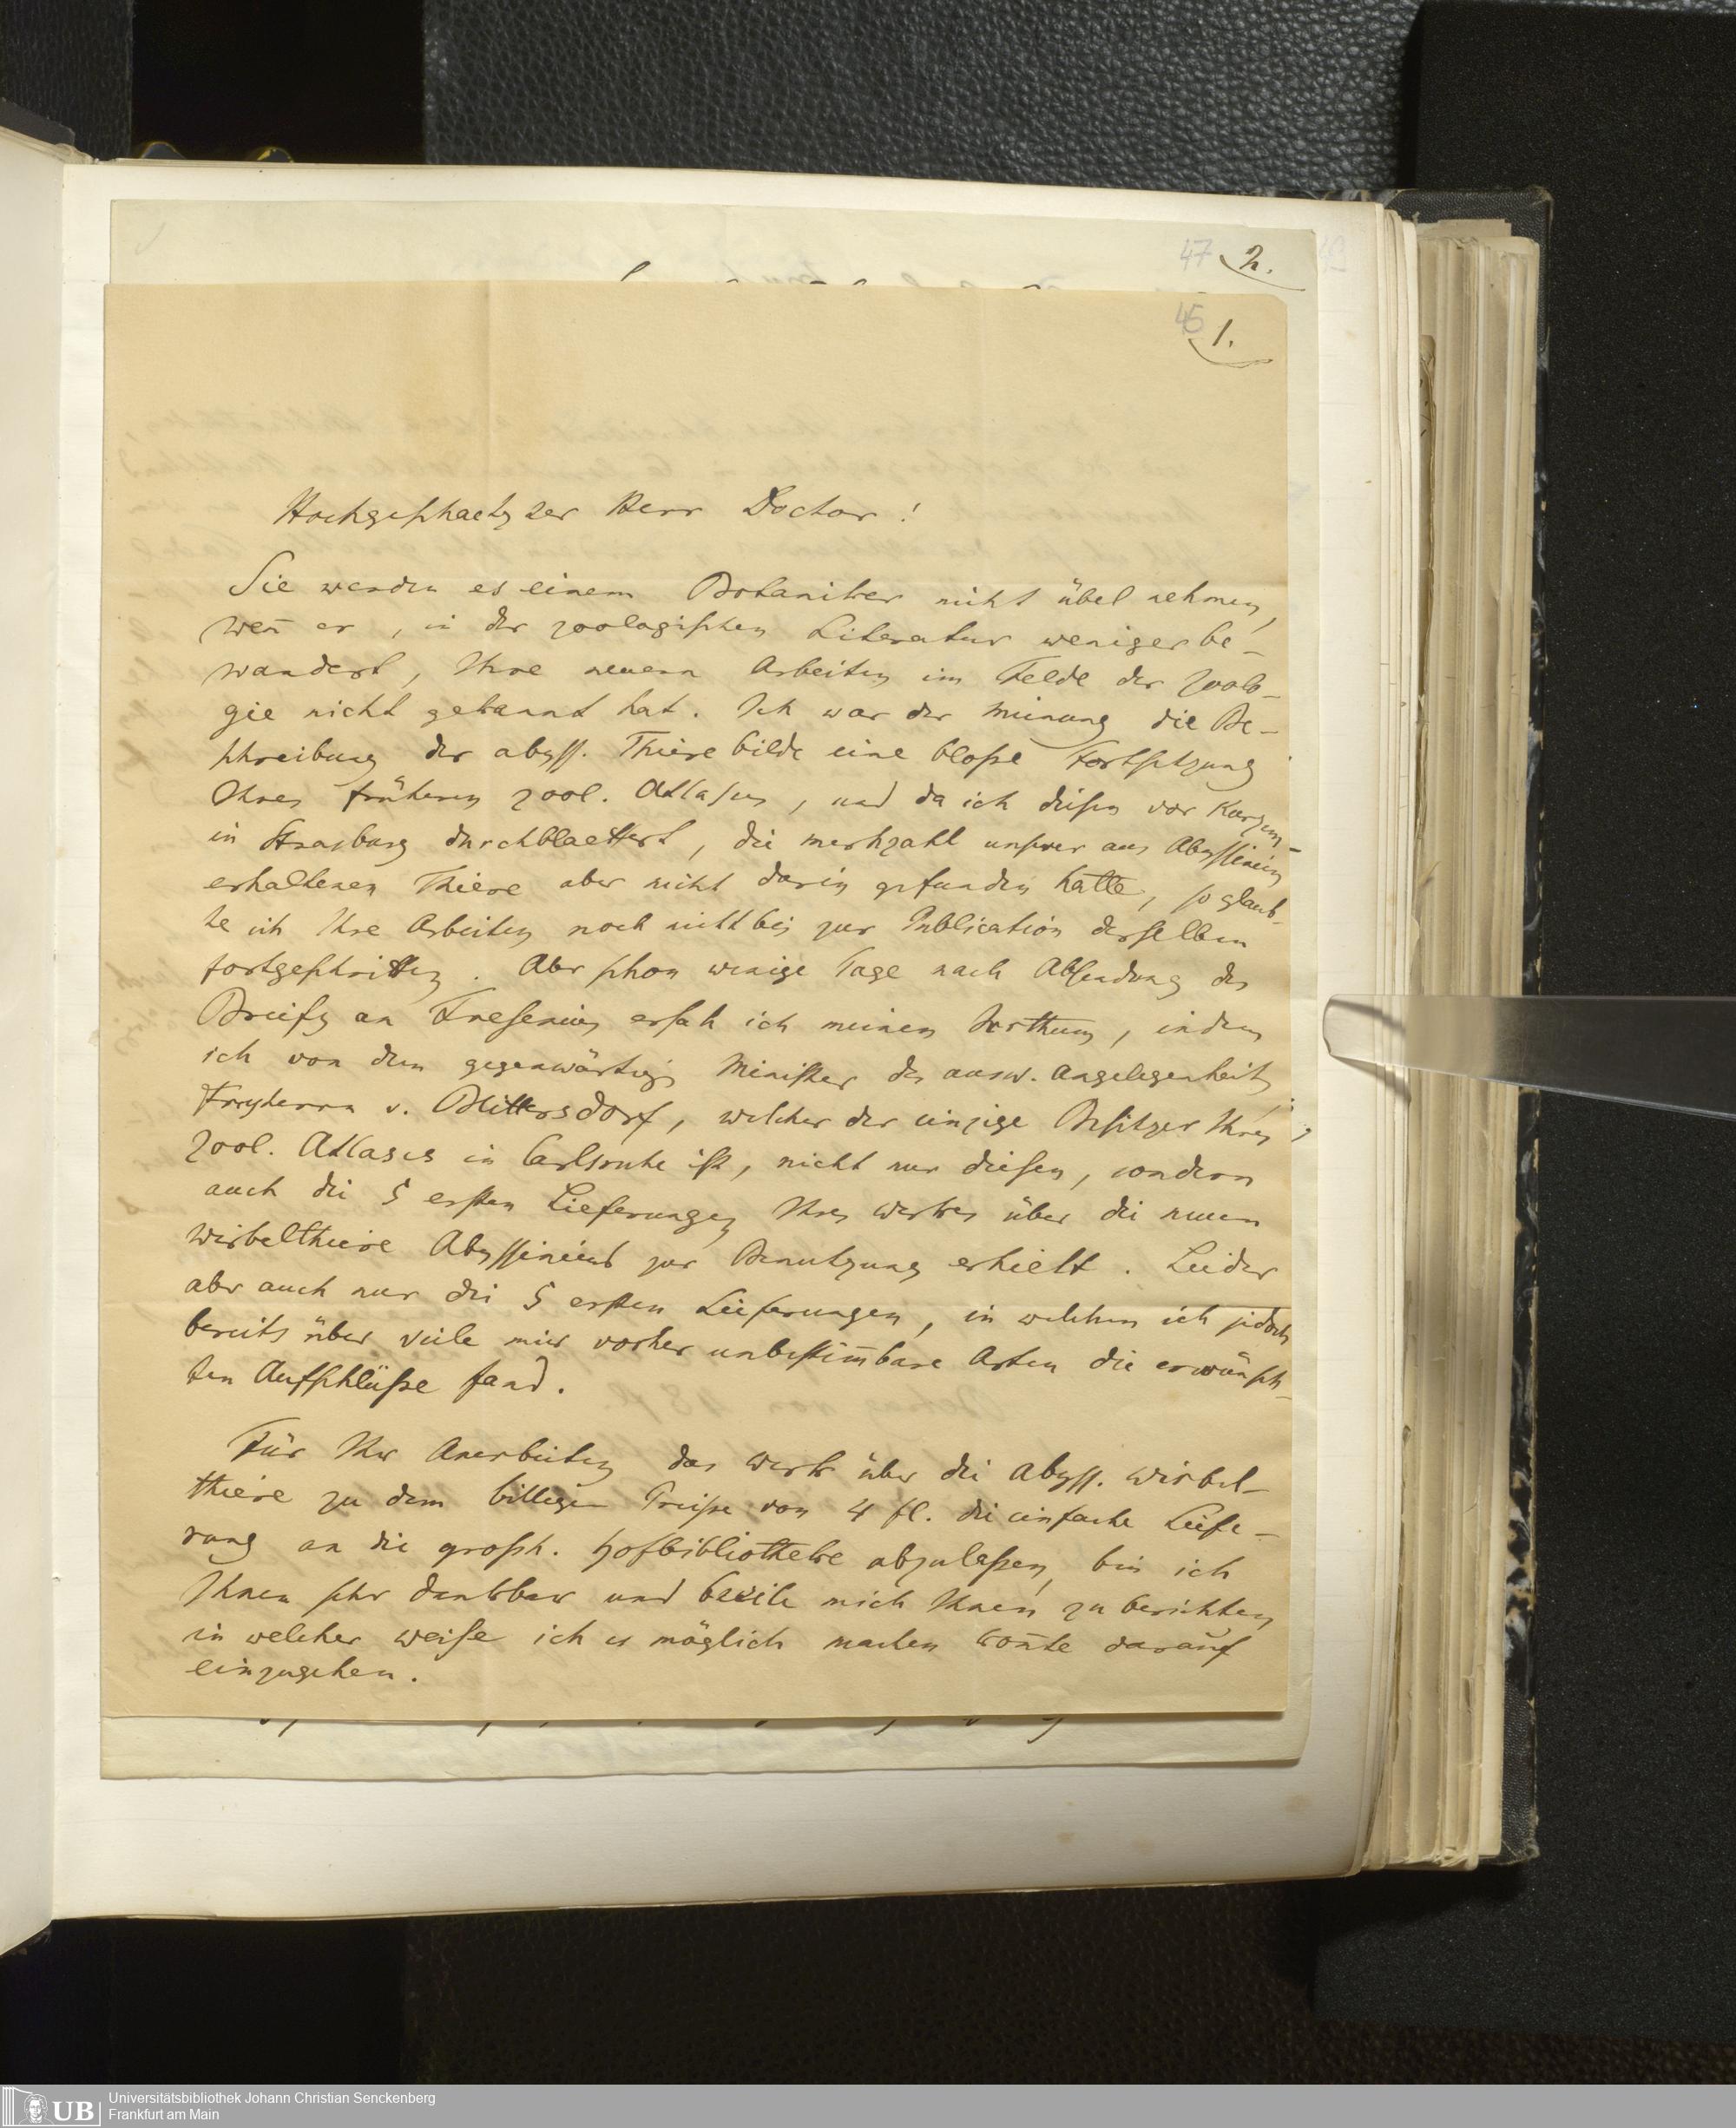 47 2.
45 1.
Hochgeschaetzter Herr Doctor!
Sie werden es einem Botaniker nicht übel nehmen,
wen̄ er, in der zoologischen Literatur weniger be-
wandert, Ihre neuern Arbeiten im Felde der Zoolo-
gie nicht gekannt hat. Ich war der Meinung die Be-
schreibung der abyss. Thiere bilde eine bloße Fortsetzung
Ihres früheren zool. Atlasses, und da ich diesen vor Kurzem
in Strasburg durchblaettert, die Mehrzahl unserer aus Abyssinien
erhaltenen Thiere aber nicht darin gefunden hatte, so glaub-
te ich Ihre Arbeiten noch nicht bis zur Publication derselben
fortgeschritten. Aber schon wenige Tage nach Absendung des
Briefes an Fresenius ersah ich meinen Irrthum, indem
ich von dem gegenwärtigen Minister der ausw. Angelegenheiten
Freyherrn v. Blittersdorf, welcher der einzige Besitzer Ihres
zool. Atlases in Carlsruhe ist, nicht nur diesen, sondern
auch die 5 ersten Lieferungen Ihres Werkes über die neuen
Wirbelthiere Abyssiniens zur Benutzung erhielt. Leider
aber auch nur die 5 ersten Lieferungen, in welchen ich jedoch
bereits über viele mir vorher unbestim̄bare Arten die erwünsch-
ten Aufschlüße fand.
Für Ihr Anerbieten das Werk über die Abyss. Wirbel-
thiere zu dem billigen Preise von 4 fl. die einfache Liefe-
rung an die grosh. Hofbibliotheke abzulaßen, bin ich
Ihnen sehr dankbar und beeile mich Ihnen zu berichten,
in welcher Weise ich es möglich machen kon̄te darauf
einzugehen.
UB
Universitätsbibliothek Johann Christian Senckenberg
Frankfurt am Main